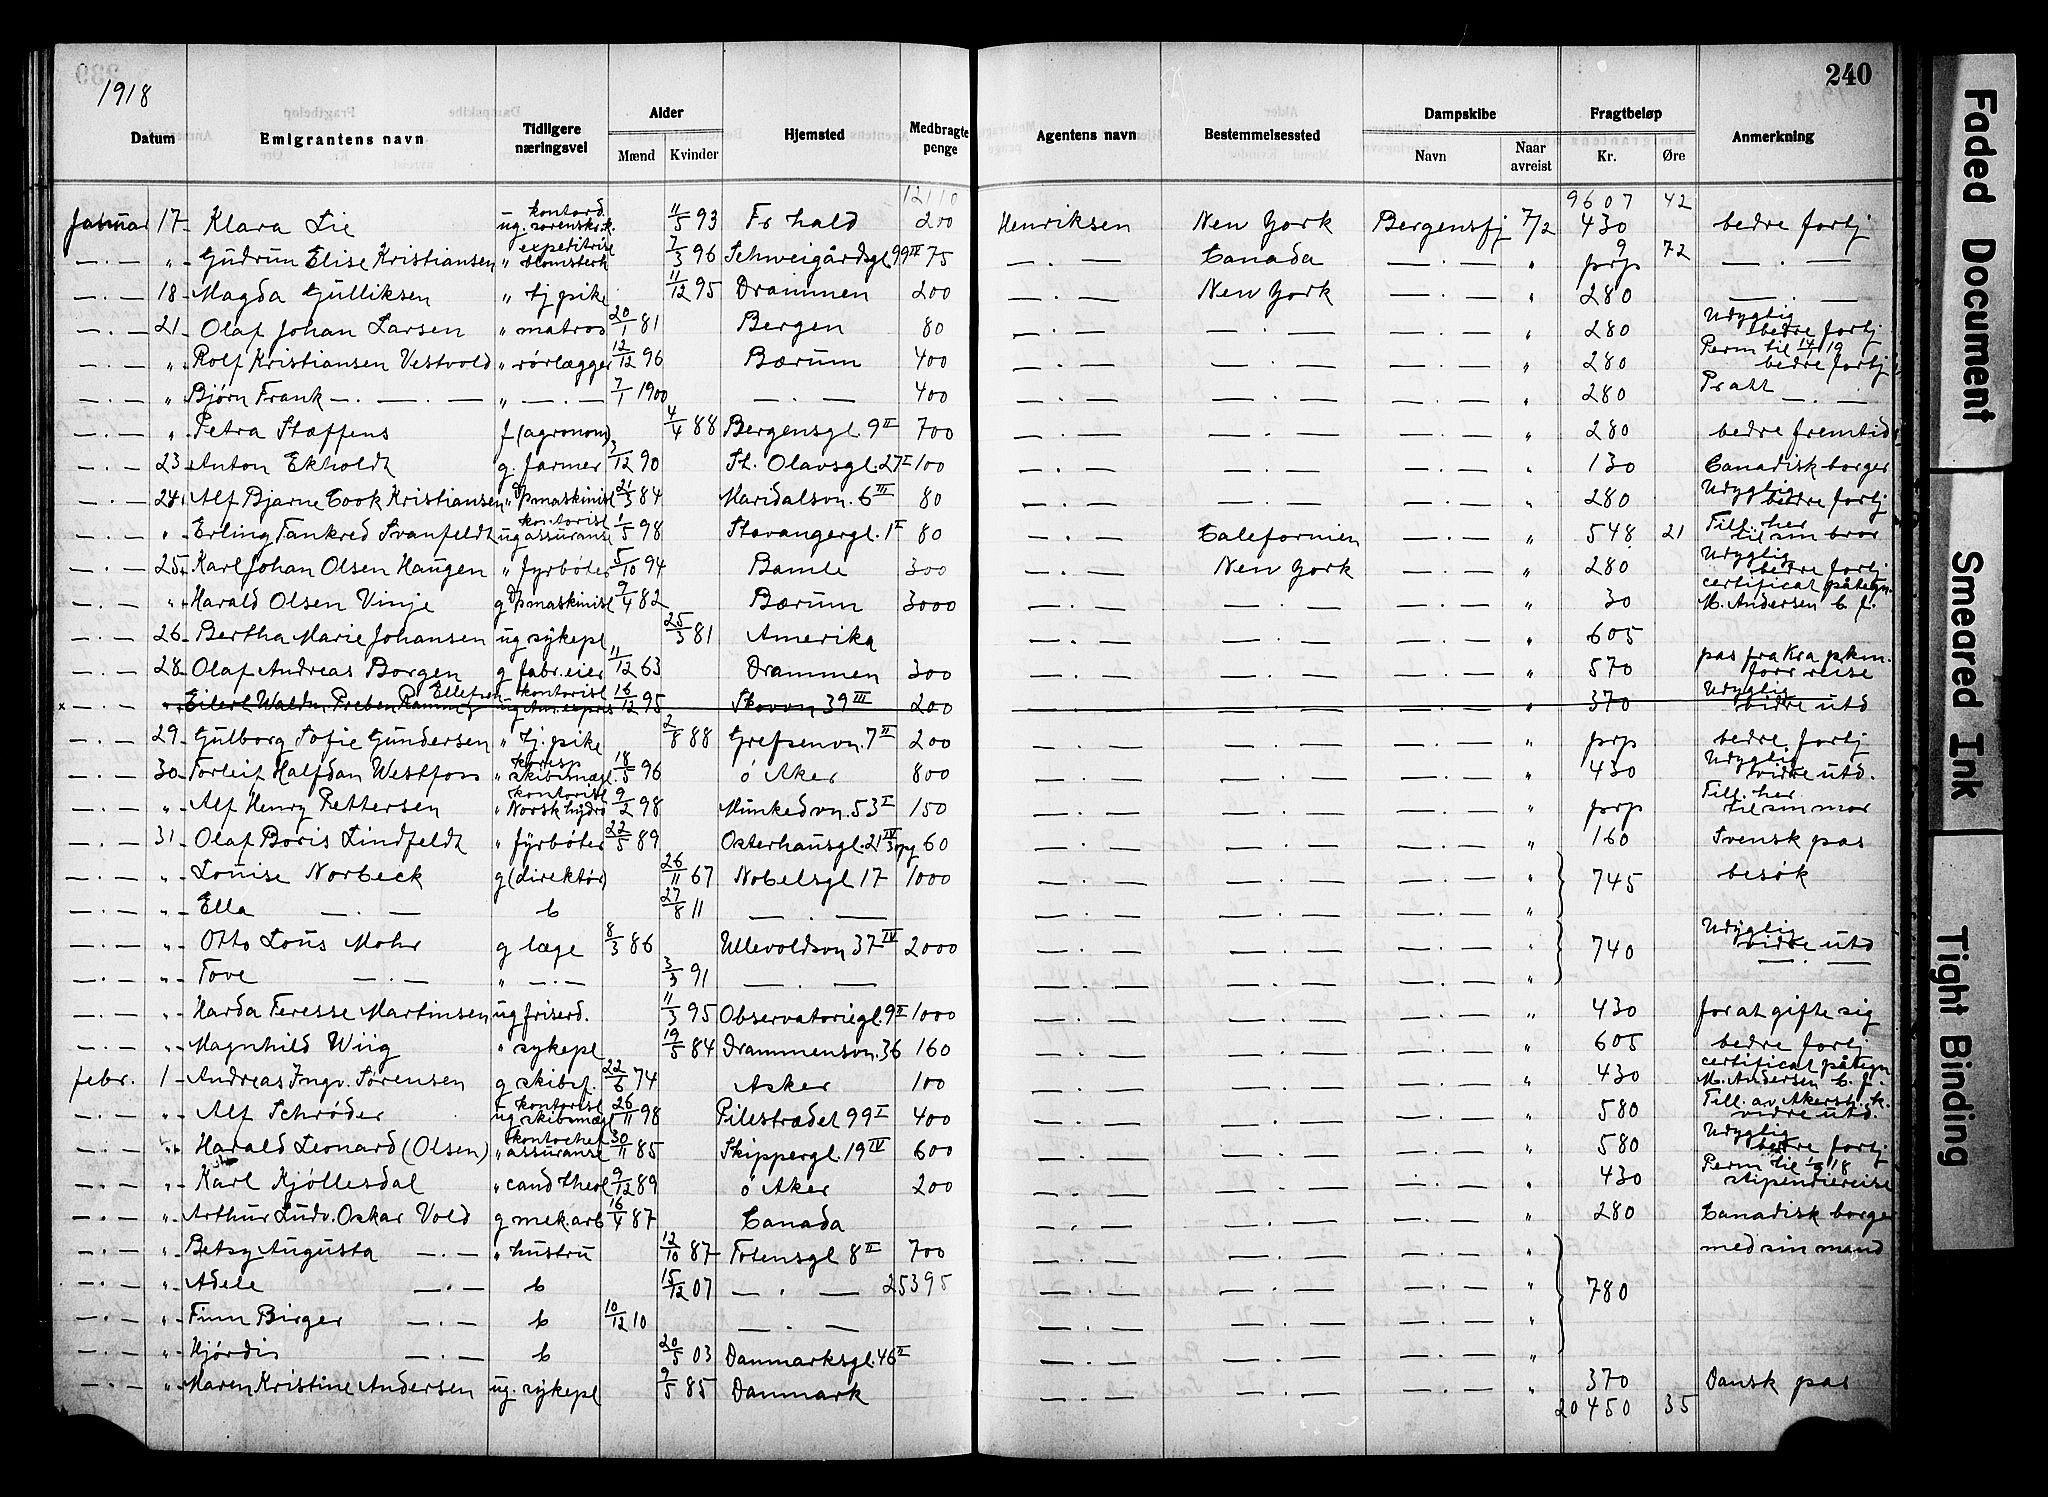 1918
240
Datum Emigrantens navn Tidligere næringsvei Alder Mænd Kvinder Hjemsted Medbragte penge Agentens navn Bestemmelsessted Dampskibe Navn Naar avreist Fragtbeløp Kr. Øre Anmerkning
12110 9607 42
Januar 17 Klara Lie ug. kontord. sorenskr.k. 11/5 93 Fr hald 200 Henriksen New York Bergensfj 7/2 430 bedre fortj
— . — " Gudrun Elise Kristiansen " expeditrise blomsterh 7/3 96 Schweigårdsgt 99 IV 75 — . — Canada — . — " prp 9 72 — . —
— . — 18 Magda Gulliksen " tj pike 11/12 95 Drammen 200 — . — New York — . — " 280 — . —
— . — 21 Olaf Johan Larsen " matros 20/1 81 Bergen 80 — . — — . — — . — " 280 Udygtig bedre fortj
— . — " Rolf Kristiansen Vestvold " rørlægger 12/12 96 Bærum 400 — . — — . — — . — " 280 Perm til 14/1 19 bedre fortj
— . — " Bjørn Frank — . — . — " — . — 7/1 1900 — . — 400 — . — — . — — . — " 280 Pratt — . —
— . — " Petra Staffens f (agronom) 4/4 88 Bergensgt 9 II 700 — . — — . — — . — " 280 bedre fremtid
— . — 23 Anton Ekholdt g. farmer 3/12 90 St. Olavsgt. 27 I 100 — . — — . — — . — " 130 Canadisk borger
— . — 24 Alf Bjarne Cook Kristiansen " Dpmaskinist 21/3 84 Maridalsvn. 6 III 80 — . — — . — — . — " 280 Udygtig bedre fortj
— . — " Erling Tankred Svanfeldt ug kontorist assuranse 1/5 98 Stavangergt. 1 I 80 — . — Calefornien — . — " 548 21 Till. her til sin bror
— . — 25 Karl Johan Olsen Haugen " fyrbøter 5/10 94 Bamle 300 — . — New York — . — " 280 Udygtig bedre fortj
— . — " Harald Olsen Vinje g Dpmaskinist 9/4 82 Bærum 3000 — . — — . — — . — " 30 certificat påtegn. M. Andersen C. f.
— . — 26 Bertha Marie Johansen ug sykepl 25/3 81 Amerika — . — — . — — . — " 605
— . — 28 Olaf Andreas Borgen g fabr. eier 11/12 63 Drammen 300 — . — — . — — . — " 570 pas fra Kra pkm. forr reise
x — . — " Eilert Waldm Preben Ramm Ellefsen ug kontorist Am. expres 16/12 95 Skovvn 39 III 200 — — — " 370 Udygtig vidre utd
— . — 29 Gulborg Sofie Gundersen " tj. pike 2/8 88 Grefsenvn. 7 II 200 — . — — . — — . — " prp bedre fortj
— . — 30 Torleif Halfdan Westfoss " koresp skibsmægl. 18/5 96 ö Aker 800 — . — — . — — . — " 430 Udygtig vidre utd.
— . — " Alf Henry Pettersen " kontorist Norsk hydro 9/2 98 Munkedvn. 53 I 150 — . — — . — " prp Till. her til sin mor
— . — 31 Olaf Boris Lindfeldt " fyrbøter 22/5 89 Osterhausgt. 21 IV 3 opg 60 — . — — . — — . — " 160 Svensk pas
— . — " Louise Norbeck g (direktør) 26/11 67 Nobelsgt 17 1000 — . — — . — — . — " 745 besøk
— . — " Ella — . — b 27/8 11 — . — — . — — . — — . — "
— . — " Otto Lous Mohr g læge 8/3 86 Ullevoldsvn 37 IV 2000 — . — — . — — . — " 740 Udygtig vidre utd
— . — " Tove — . — " — . — 3/3 91 — . — — . — — . — — . — " — . —
— . — " Harda Teresse Martinsen ug friserd. 11/3 95 Observatoriegt. 9 I 1000 — . — — . — — . — " 430 for at gifte sig
— . — " Magnhild Wiig " sykepl 19/5 84 Drammensvn. 36 160 — . — — . — — . — " 605 bedre fortj
febr. 1 Andreas Ingv. Sørensen g skibsf. 22/6 74 Asker 100 — . — — . — — . — " 430 certificat påtegn M. Andersen C. f.
— . — " Alf Schrøder ug kontorist skibsmægl 26/11 98 Pilestrædet 99 I 400 — . — — . — — . — " 580 Till. av Akersh. k. vidre utd.
— . — " Harald Leonard (Olsen) " kontochef assuranse 30/11 85 Skippergt. 19 IV 600 — . — — . — — . — " 580 Udygtig bedre fortj
— . — " Karl Kjøllesdal " cand theol 9/12 89 ö Aker 200 — . — — . — — . — " 430 Perm til 18 stipendiereise
— . — " Arthur Ludv. Oskar Vold g mek. arb 16/4 87 Canada — . — — . — — . — " 280 Canadisk borger
— . — " Betsy Augusta — . — " hustru 12/10 87 Totensgt 8 II 700 — . — — . — — . — " med sin mand
— . — " Adele — . — b 15/12 07 — . — 25395 — . — — . — — . — " 780
— . — " Finn Birger — . — b 10/12 10 — . — — . — — . — — . — "
— . — " Hjørdis — . — b 20/5 03 Danmarksgt. 46 II — . — — . — — . — "
— . — " Maren Kristine Andersen ug. sykepl 9/5 85 Danmark — . — — . — — . — " 370 Dansk pas
20450 35
Faded Document
Smeared Ink
Tight Binding